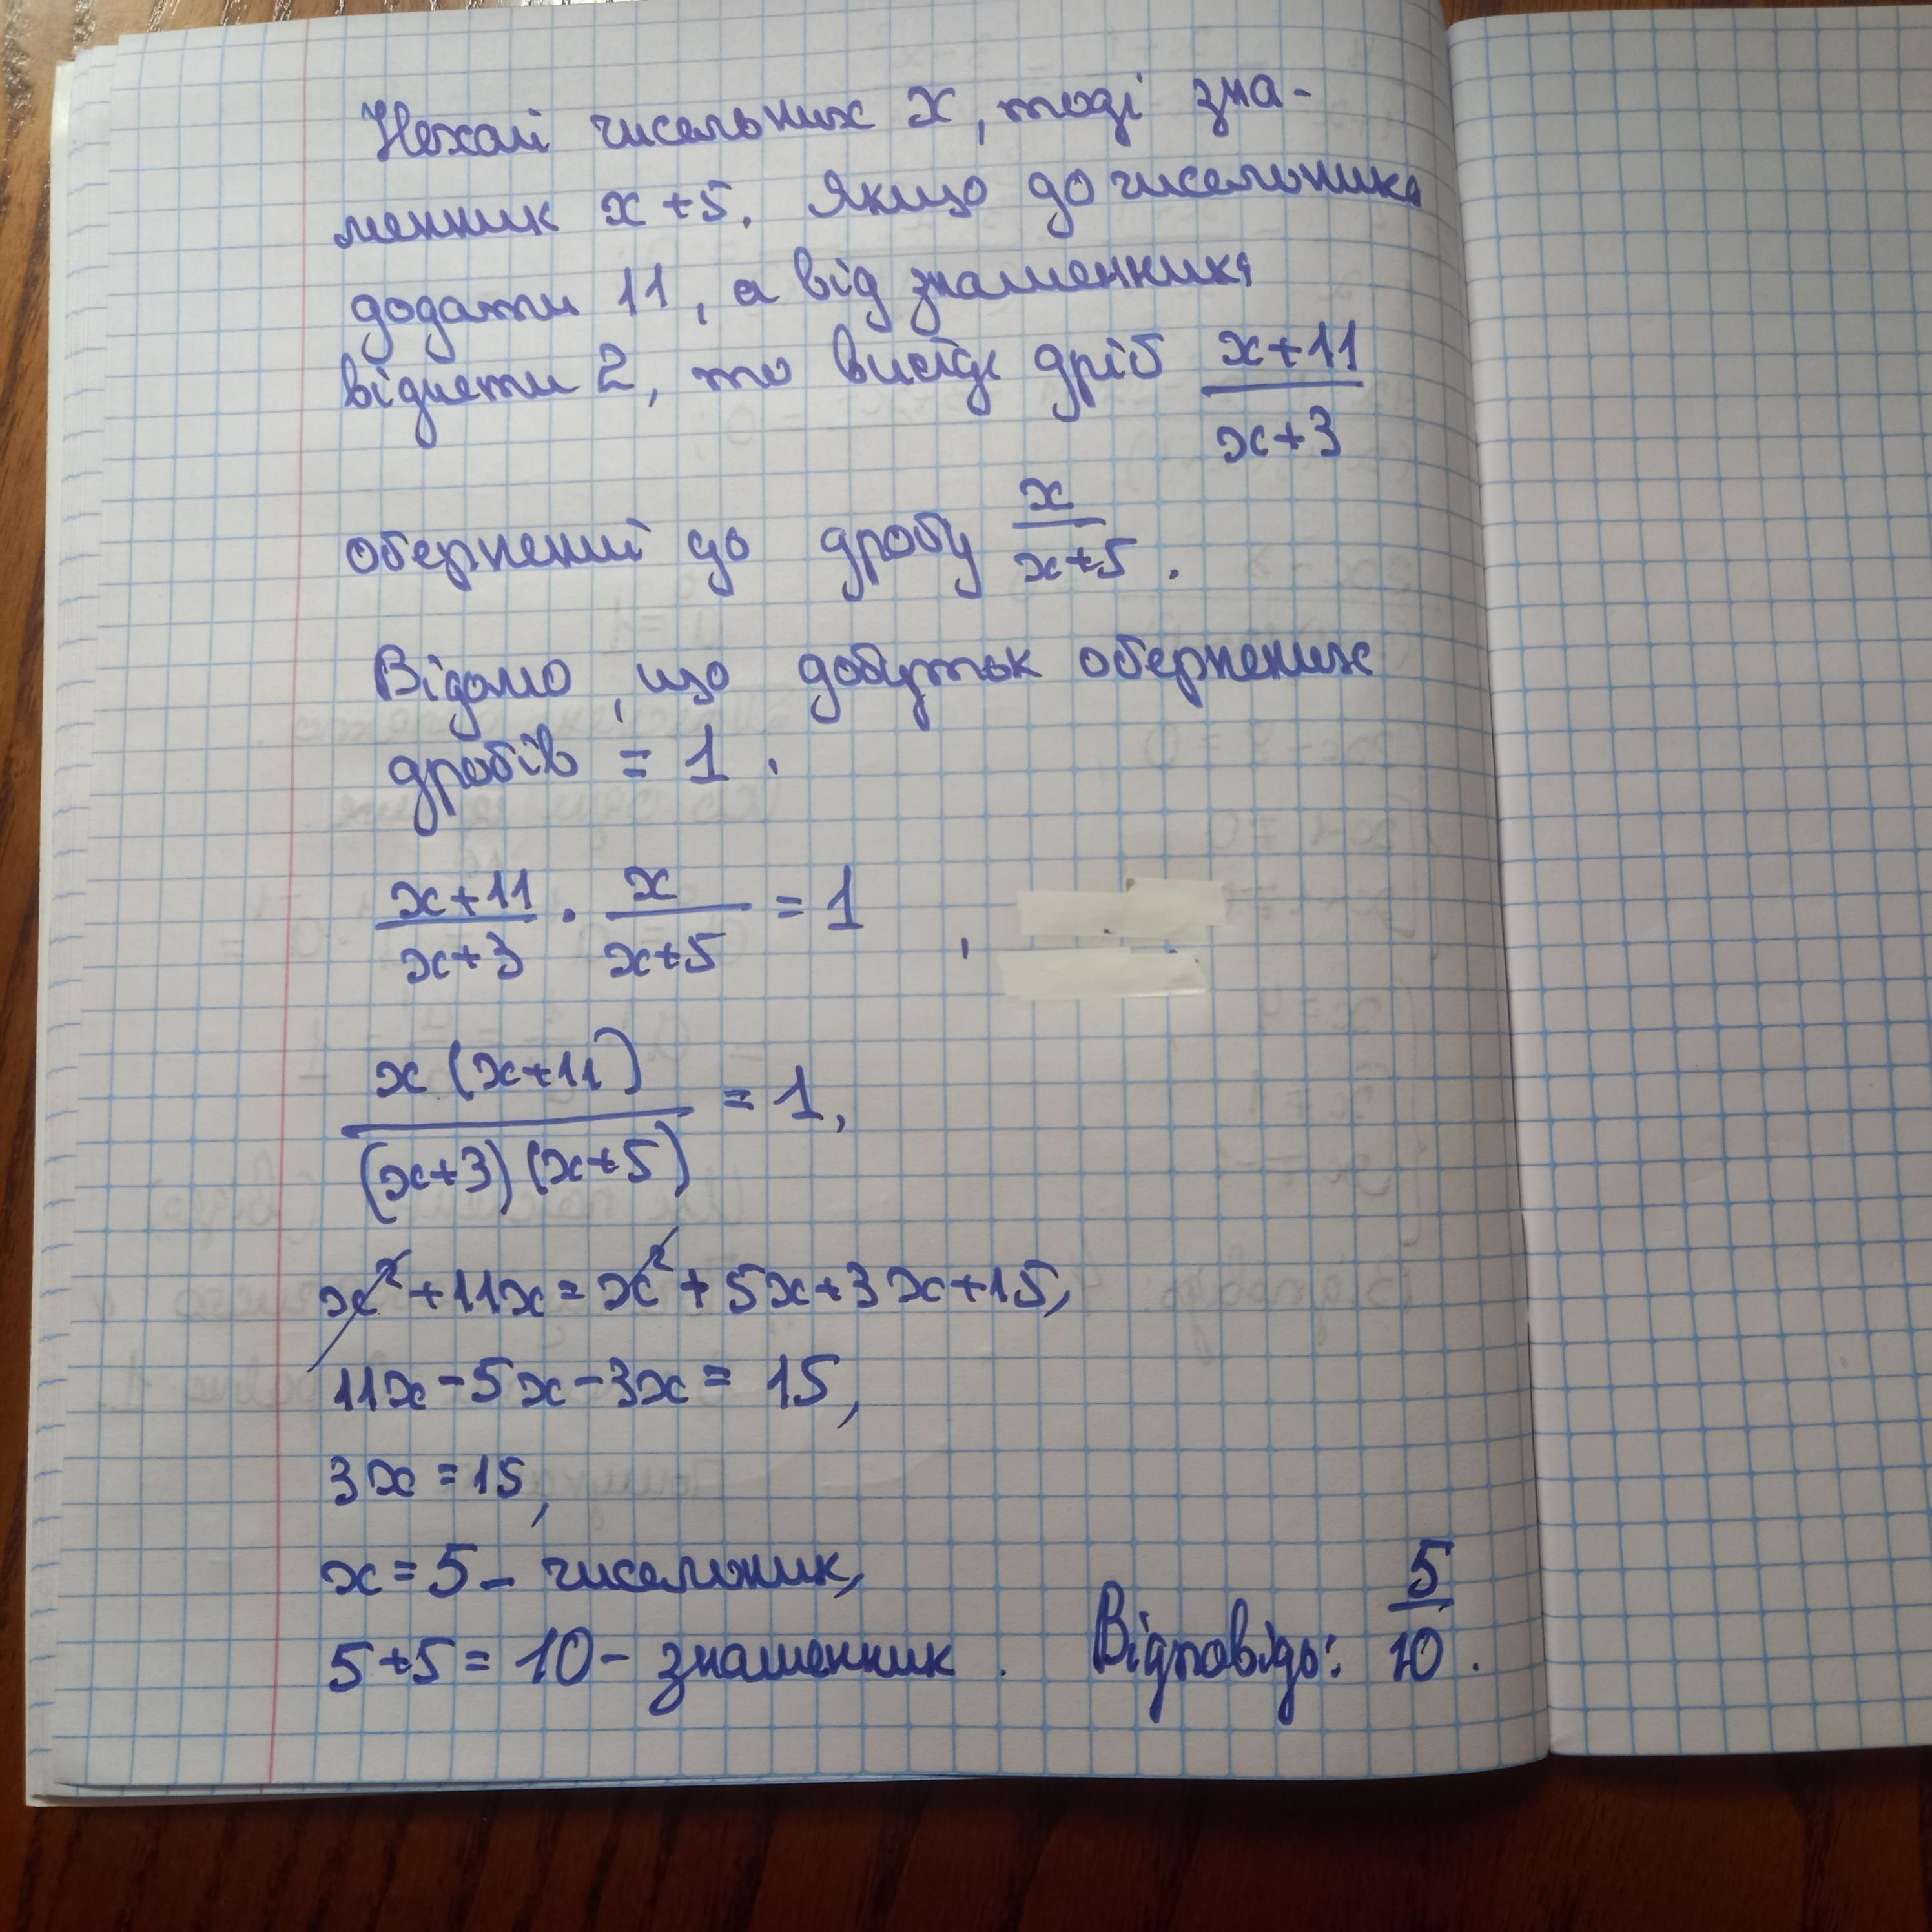 Нехай чисельник x, тоді зна-
менник x+5. Якщо до чисельника
додати 11, а від знаменника
відняти 2, то вийде дріб x+11/x+3
обернений до дробу x/x+5.
Відомо, що добуток обернених
дробів = 1.
x+11/x+3 · x/x+5 = 1,
x(x+11)/(x+3)(x+5) = 1,
x²+11x=x²+5x+3x+15,
11x-5x-3x= 15,
3x=15,
x=5- чисельник,
5+5=10- знаменник. Відповідь: 5/10.